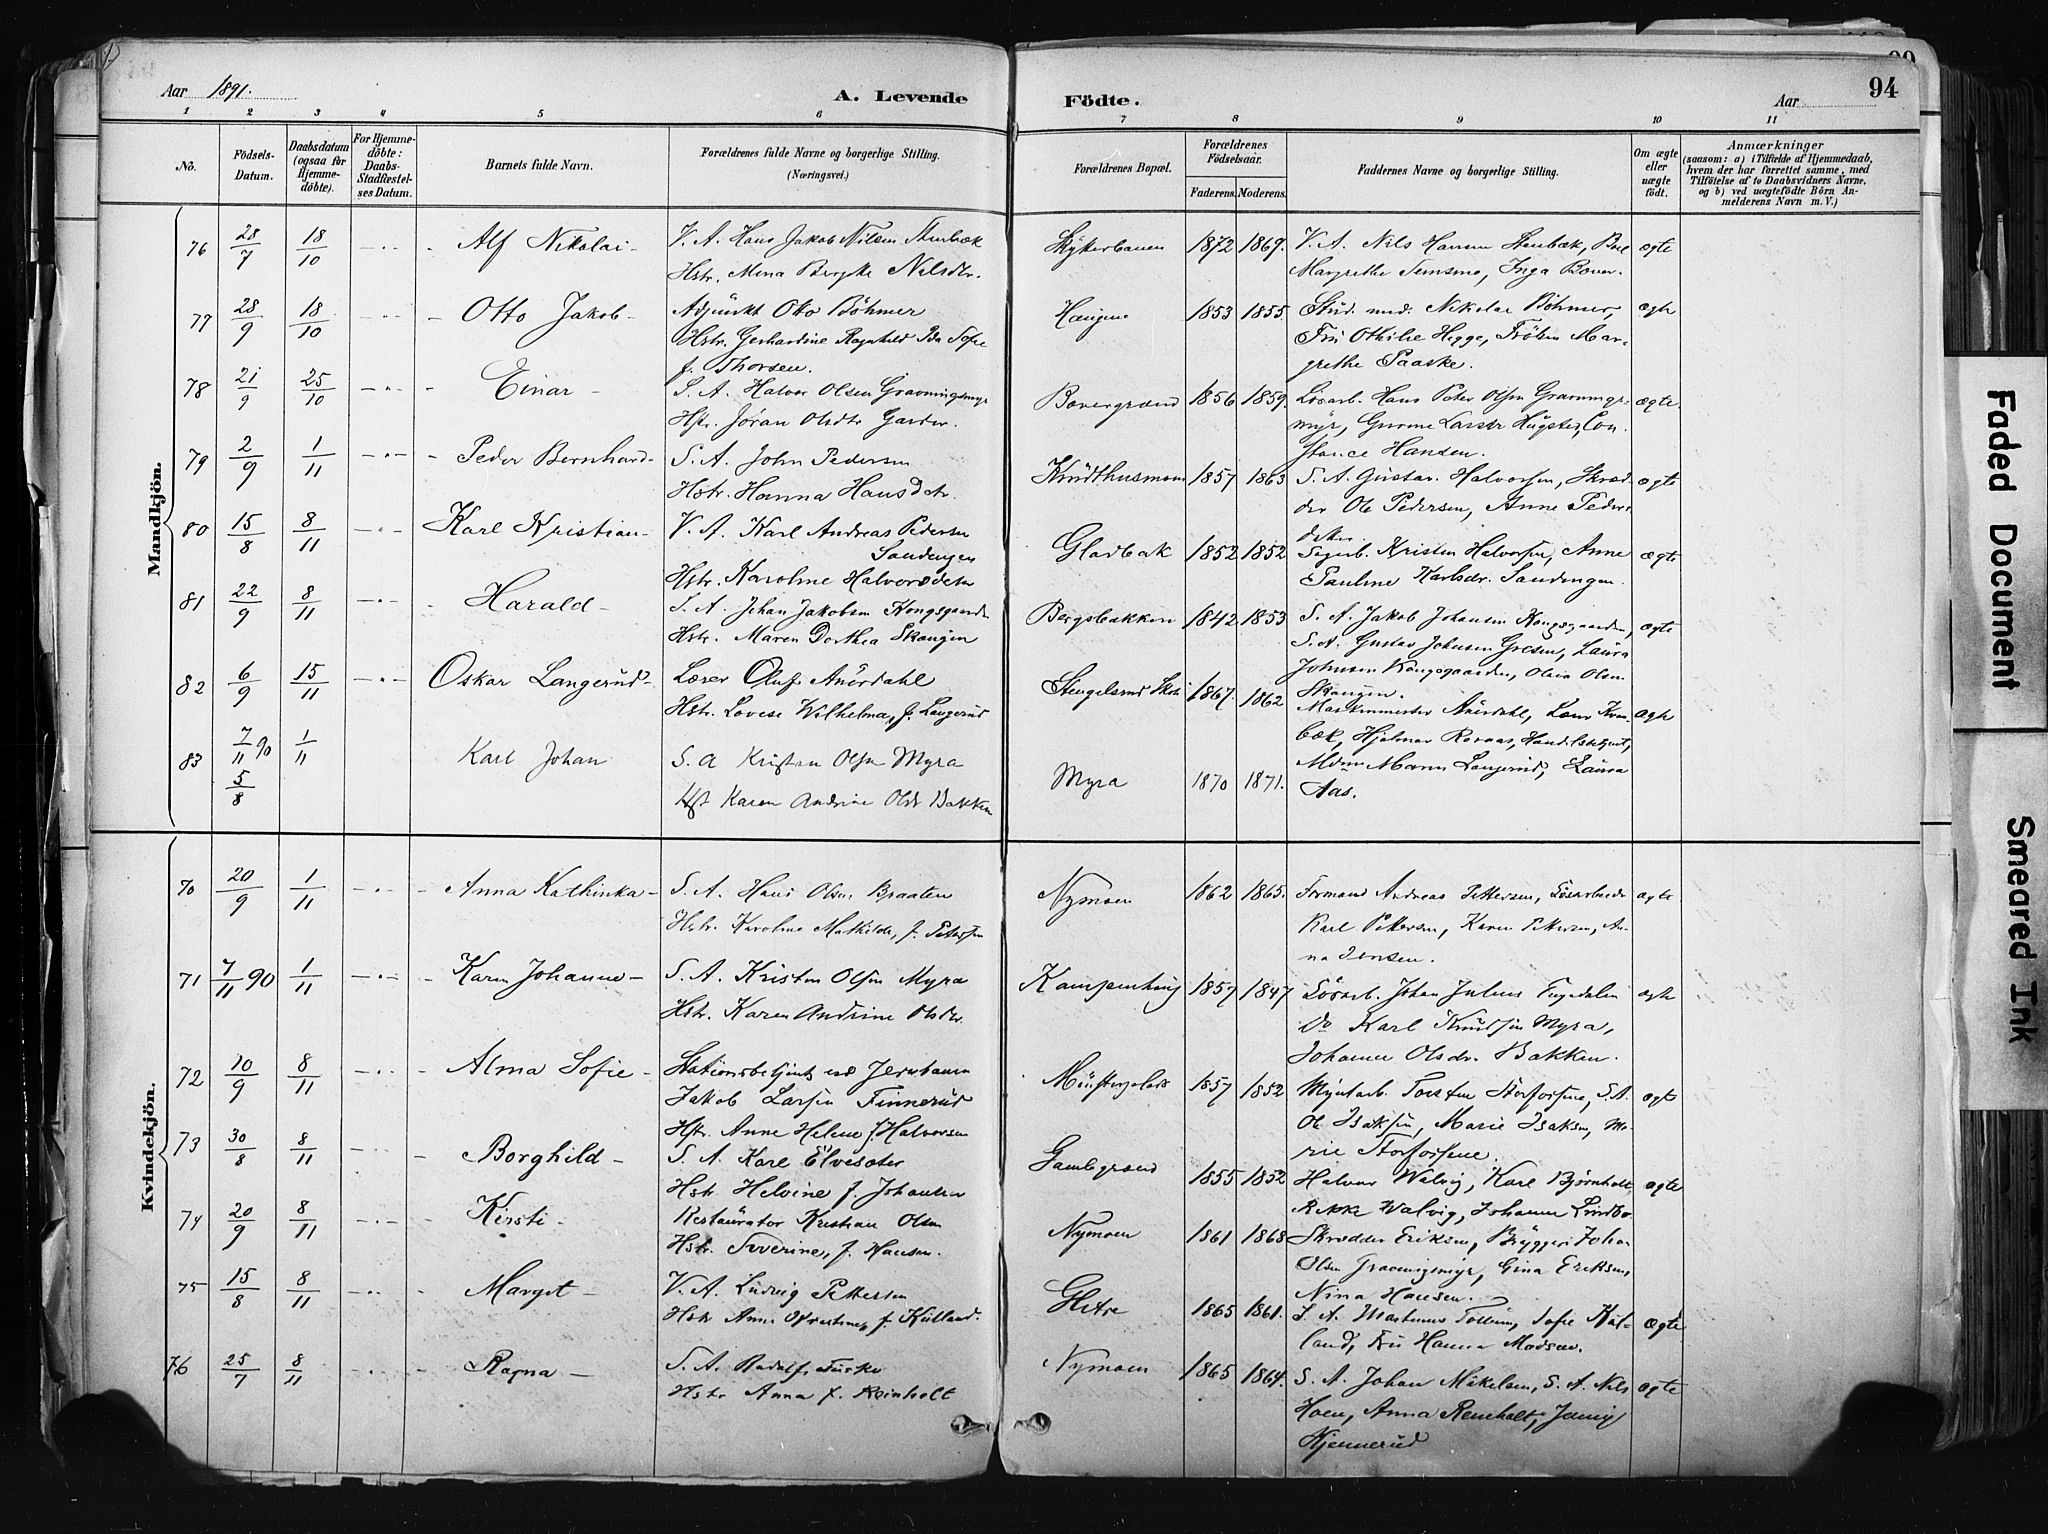 Aar 1891.
A. Levende
Födte.
Aar
94
1 2 3 4 5 6 7 8 9 10 11
No.
Födsels-Datum.
Daabsdatum (ogsaa for Hjemme-döbte).
For Hjemme-döbte: Daabs-Stadfæstel-ses Datum.
Barnets fulde Navn.
Forældrenes fulde Navne og borgerlige Stilling.
(Næringsvei.)
Forældrenes Bopæl.
Forældrenes Födselsaar.
Faderens. Moderens.
Faddernes Navne og borgerlige Stilling.
Om ægte eller uægte födt.
Anmærkninger
(saasom: a) i Tilfælde af Hjemmedaab, hvem der har forrettet samme, med Tilföielse af to Daabsvidners Navne, og b) ved uægtefödte Börn An-melderens Navn m. V.)
Mandkjön.
76 28/7 18/10 Alf Nikolai V. A. Hans Jakob Nilsen Stenbæk 1872 1869. V. A. Nils Hansen Stenbæk, ægte
Hstr. Mena Nilsdtr. Margrethe Inga Bover.
77 28/9 18/10 Otto Jakob Adjunkt Otto Böhmer Haugene 1853 1855. Stud. med. Nikolai Böhmer, ægte
Hstr. Gerhardine Ragnhild Ida Sofie Fru Othilie Hegge, Fröken Mar-
f. Thorsen. grethe Paaske.
78 21/9 25/10 Einar S. A. Halvor Olsen Gravningsmyr Bovergrænd 1856 1859. Lösarb. Hans Peter Olsen Gravnings- ægte
Hstr. Jøran Olsdtr myr, Con-
stance Hansen.
79 2/9 1/11 Peder Bernhard S. A. John Pedersen Knudthusmoen 1857 1863 S. A. Gustav Halvorsen, Skræd- ægte
Hstr. Hanna Hansdtr. der Ole Pedersen, Anne Peders-
80 15/8 8/11 Karl Kristian V. A. Karl Andreas Pedersen Gladbak 1852 1852 datter. Kristen Halvorsen, Anne ægte
Sandengen
Hstr. Karoline Halvorsdtr Pauline Karlsdr. Sandengen.
81 22/9 8/11 Harald S. A. Johan Jakobsen Kongsgaarden Bergsbakken 1842 1853 S. A. Jakob Johansen Kongsgaarden, ægte
Hstr. Maren Dorthea Skaugen S. A. Gustav Johnsen Laura
Johnsen Kongsgaarden, Olava Olsen
82 6/9 15/11 Oskar Langerud Lærer Oluf Aurdahl Stengelsrud Skole 1867. 1862 Skaugen. ægte
Hstr. Lovise Wilhelma, f. Langerud Maskinmester Aurdahl,
bæk, Hjalmar Handelsbetjent,
83 7/11 90 1/11 Karl Johan S. A Kristen Olsen Myra Myra 1870 1871. Langerud, Laura
5/8 Hst Karen Andrine Olsdr Bakken Aas.
Kvindekjön.
70 20/9 1/11 Anna Kathinka S. A. Hans Olsen Braaten Nymoen 1862 1865. Formand Andreas Pettersen, Lösarbeider ægte
Hstr. Karoline Mathilde, f. Petersen Karl Pettersen, Karen Pettersen, An-
na Jensen.
71 7/11 90 1/11 Karen Johanne S. A. Kristen Olsen Myra Kampenhaug 1857 1847 Lösarb. Johan Julius ægte
Hstr. Karen Andrine Olsdtr. Do Karl Knudsen Myra,
Johanne Olsdr. Bakken.
72 10/9 8/11 Alma Sofie Stationsbetjent ved Jernbanen 1857 1852 Myntarb. Torsten Storfossene, S. A. ægte
Jakob Larsen Finnerud Ole Isaksen, Marie Isaksen, Ma-
Hstr. Anne Helene f Halvorsen rie Storfossene.
73 30/8 8/11 Borghild S. A. Karl Elvesæter Gamlegrænd 1855 1852 Halvor Walvig, Karl Bjørnholt, ægte
Hstr. Helvine f. Johansen Rikke Walvig, Johanne Lindbo
74 20/9 8/11 Kirsti Restauratør Kristian Olsen Nymoen 1861 1868 Skrædder Eriksen, Bryggeri Johan
Hstr. Severine, f. Hansen. Olsen Gravningsmyr, Gina Eriksen,
Nina Hansen.
75 15/8 8/11 Margit V. A. Ludvig Pettersen Gletre 1865 1861. S. A. Martinus Sofie Kul- ægte
Hstr Anne f. Kulland. land, Fru Hanna Madsen.
76 25/7 8/11 Ragna S. A. Rudolf Nymoen 1865 1864. S. A. Johan Mikelsen, S. A. Nils ægte
Hstr Anna f. Reinholt Hoen, Anna Reinholt, Jenny
Hjennerud
Faded Document
Smeared Ink